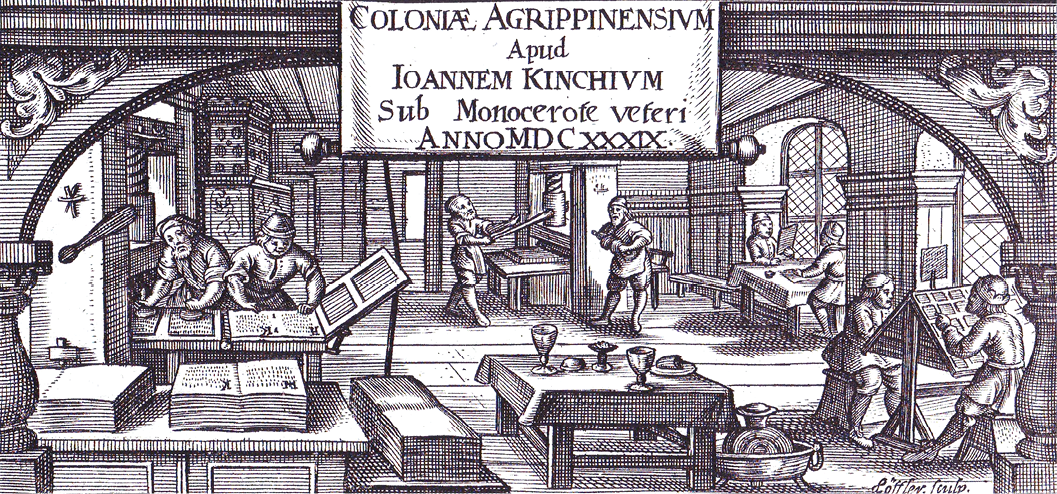 COLONIÆ AGRIPPINENSIVM
Apud
IOANNEM KINCHIVM
Sub Monocerote veteri
ANNO MDCXXXIX.
Löffler. sculp.